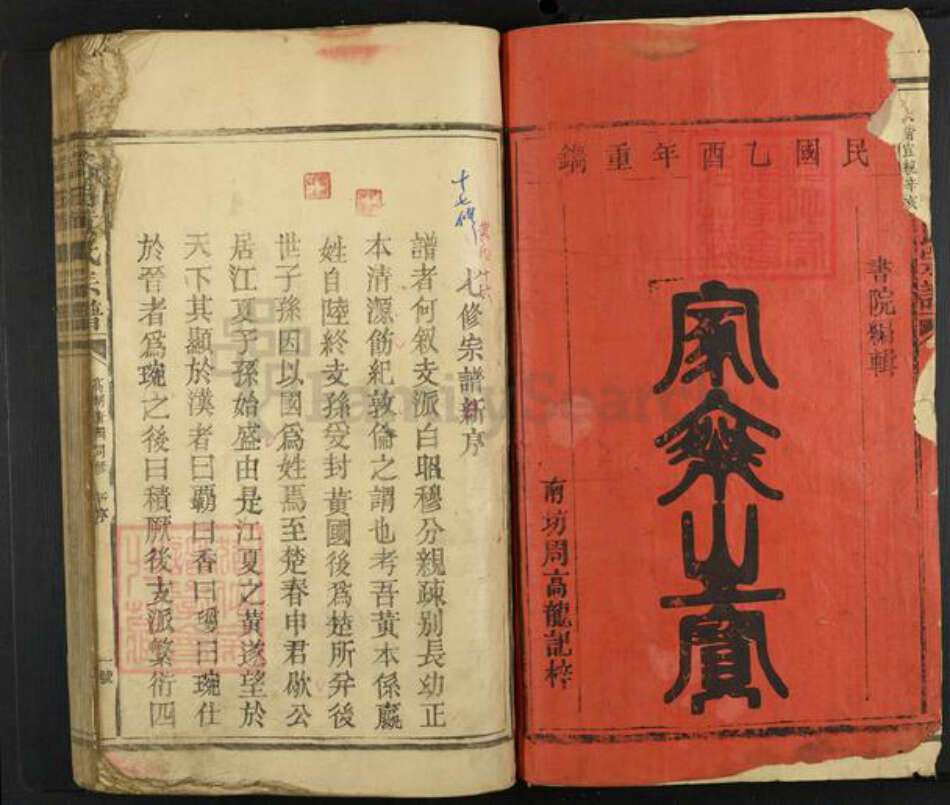 民國乙酉年重鐫
書院編輯
南坊周高龍記梓
十七修
七修宗譜新序
譜者何叙支派白昭穆分親疎別長幼正
本清源飭紀敦倫之謂也考吾黃本係嬴
姓自陸終支孫受封黃國後為楚所并後
世子孫因以國為姓焉至楚春申君歇公
居江夏子孫始盛由是江夏之黃遂望於
天下其顯於漢者曰霸曰香曰瓊曰琬仕
於晉者為琬之後曰積厥後支派繁衍四
氏宗譜
序
一號
FamilySearch